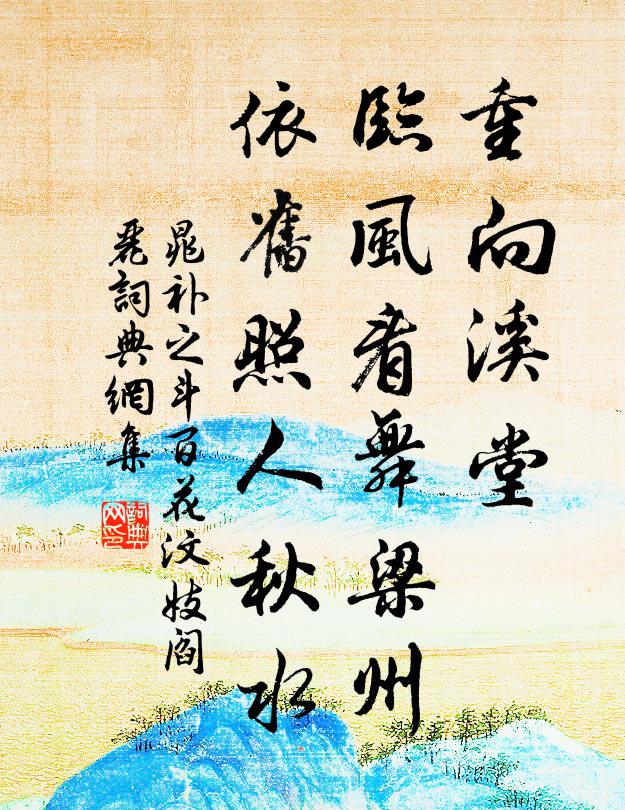 重向溪堂
臨風看舞梁州
依舊照人秋水
晁补之斗百花汶妓阎
麗詞典網集
詞典